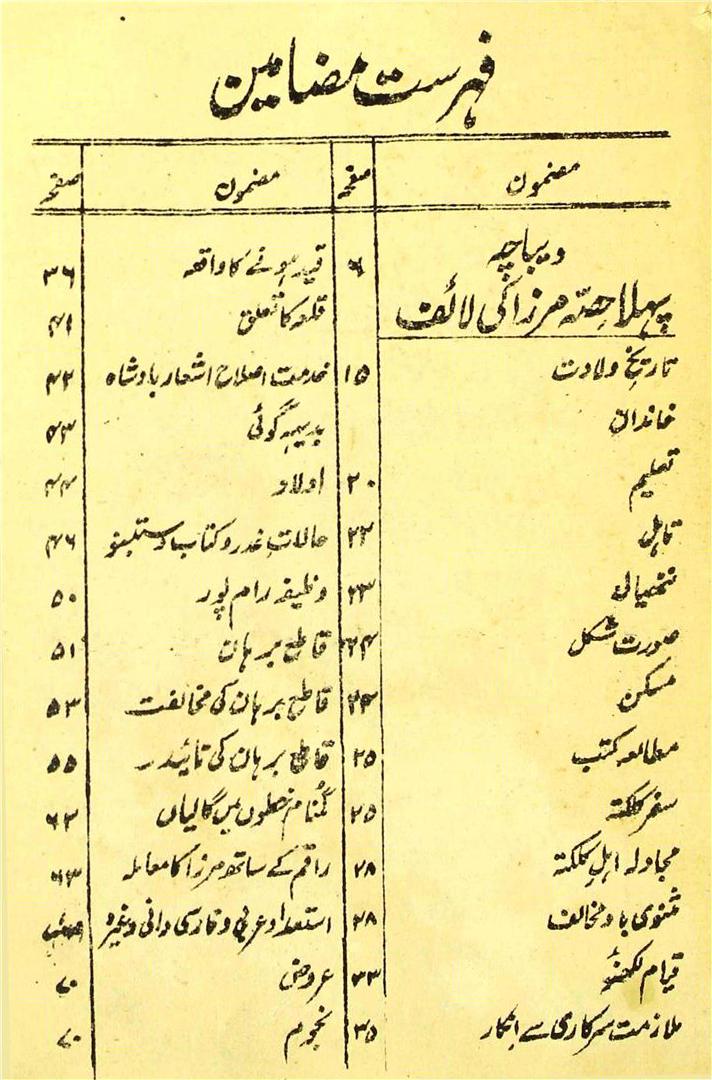 فہرست مضامین
مضمون صفحہ
دیباچہ ۶
پہلا حصہ مرزا کی لائف
تاریخ ولادت ۱۵
خاندان
تعلیم ۲۰
تاہل ۲۲
ننھیال ۲۳
صورت شکل ۲۴
مسکن ۲۴
مطالعہ کتب ۲۵
سفر کلکتہ ۲۵
مجادلہ اہل کلکتہ ۲۸
مثنوی باد مخالف ۲۸
قیام لکھنؤ ۳۳
ملازمت سرکاری سے انکار ۳۵
مضمون صفحہ
قید ہونے کا واقعہ ۳۶
قلعہ کا تعلق ۴۱
خدمت اصلاح اشعار بادشاہ ۴۲
بدیہہ گوئی ۴۳
اولاد ۴۴
حالاتِ غدر و کتاب دستنبو ۴۶
وظیفہ رام پور ۵۰
قاطع برہان ۵۱
قاطع برہان کی مخالفت ۵۳
قاطع برہان کی تائید ۵۵
گمنام خطوں میں گالیاں ۶۲
راقم کے ساتھ مرزا کا معاملہ ۶۳
استعداد عربی و فارسی دانی وغیرہ
عروض ۷۰
نجوم ۷۰